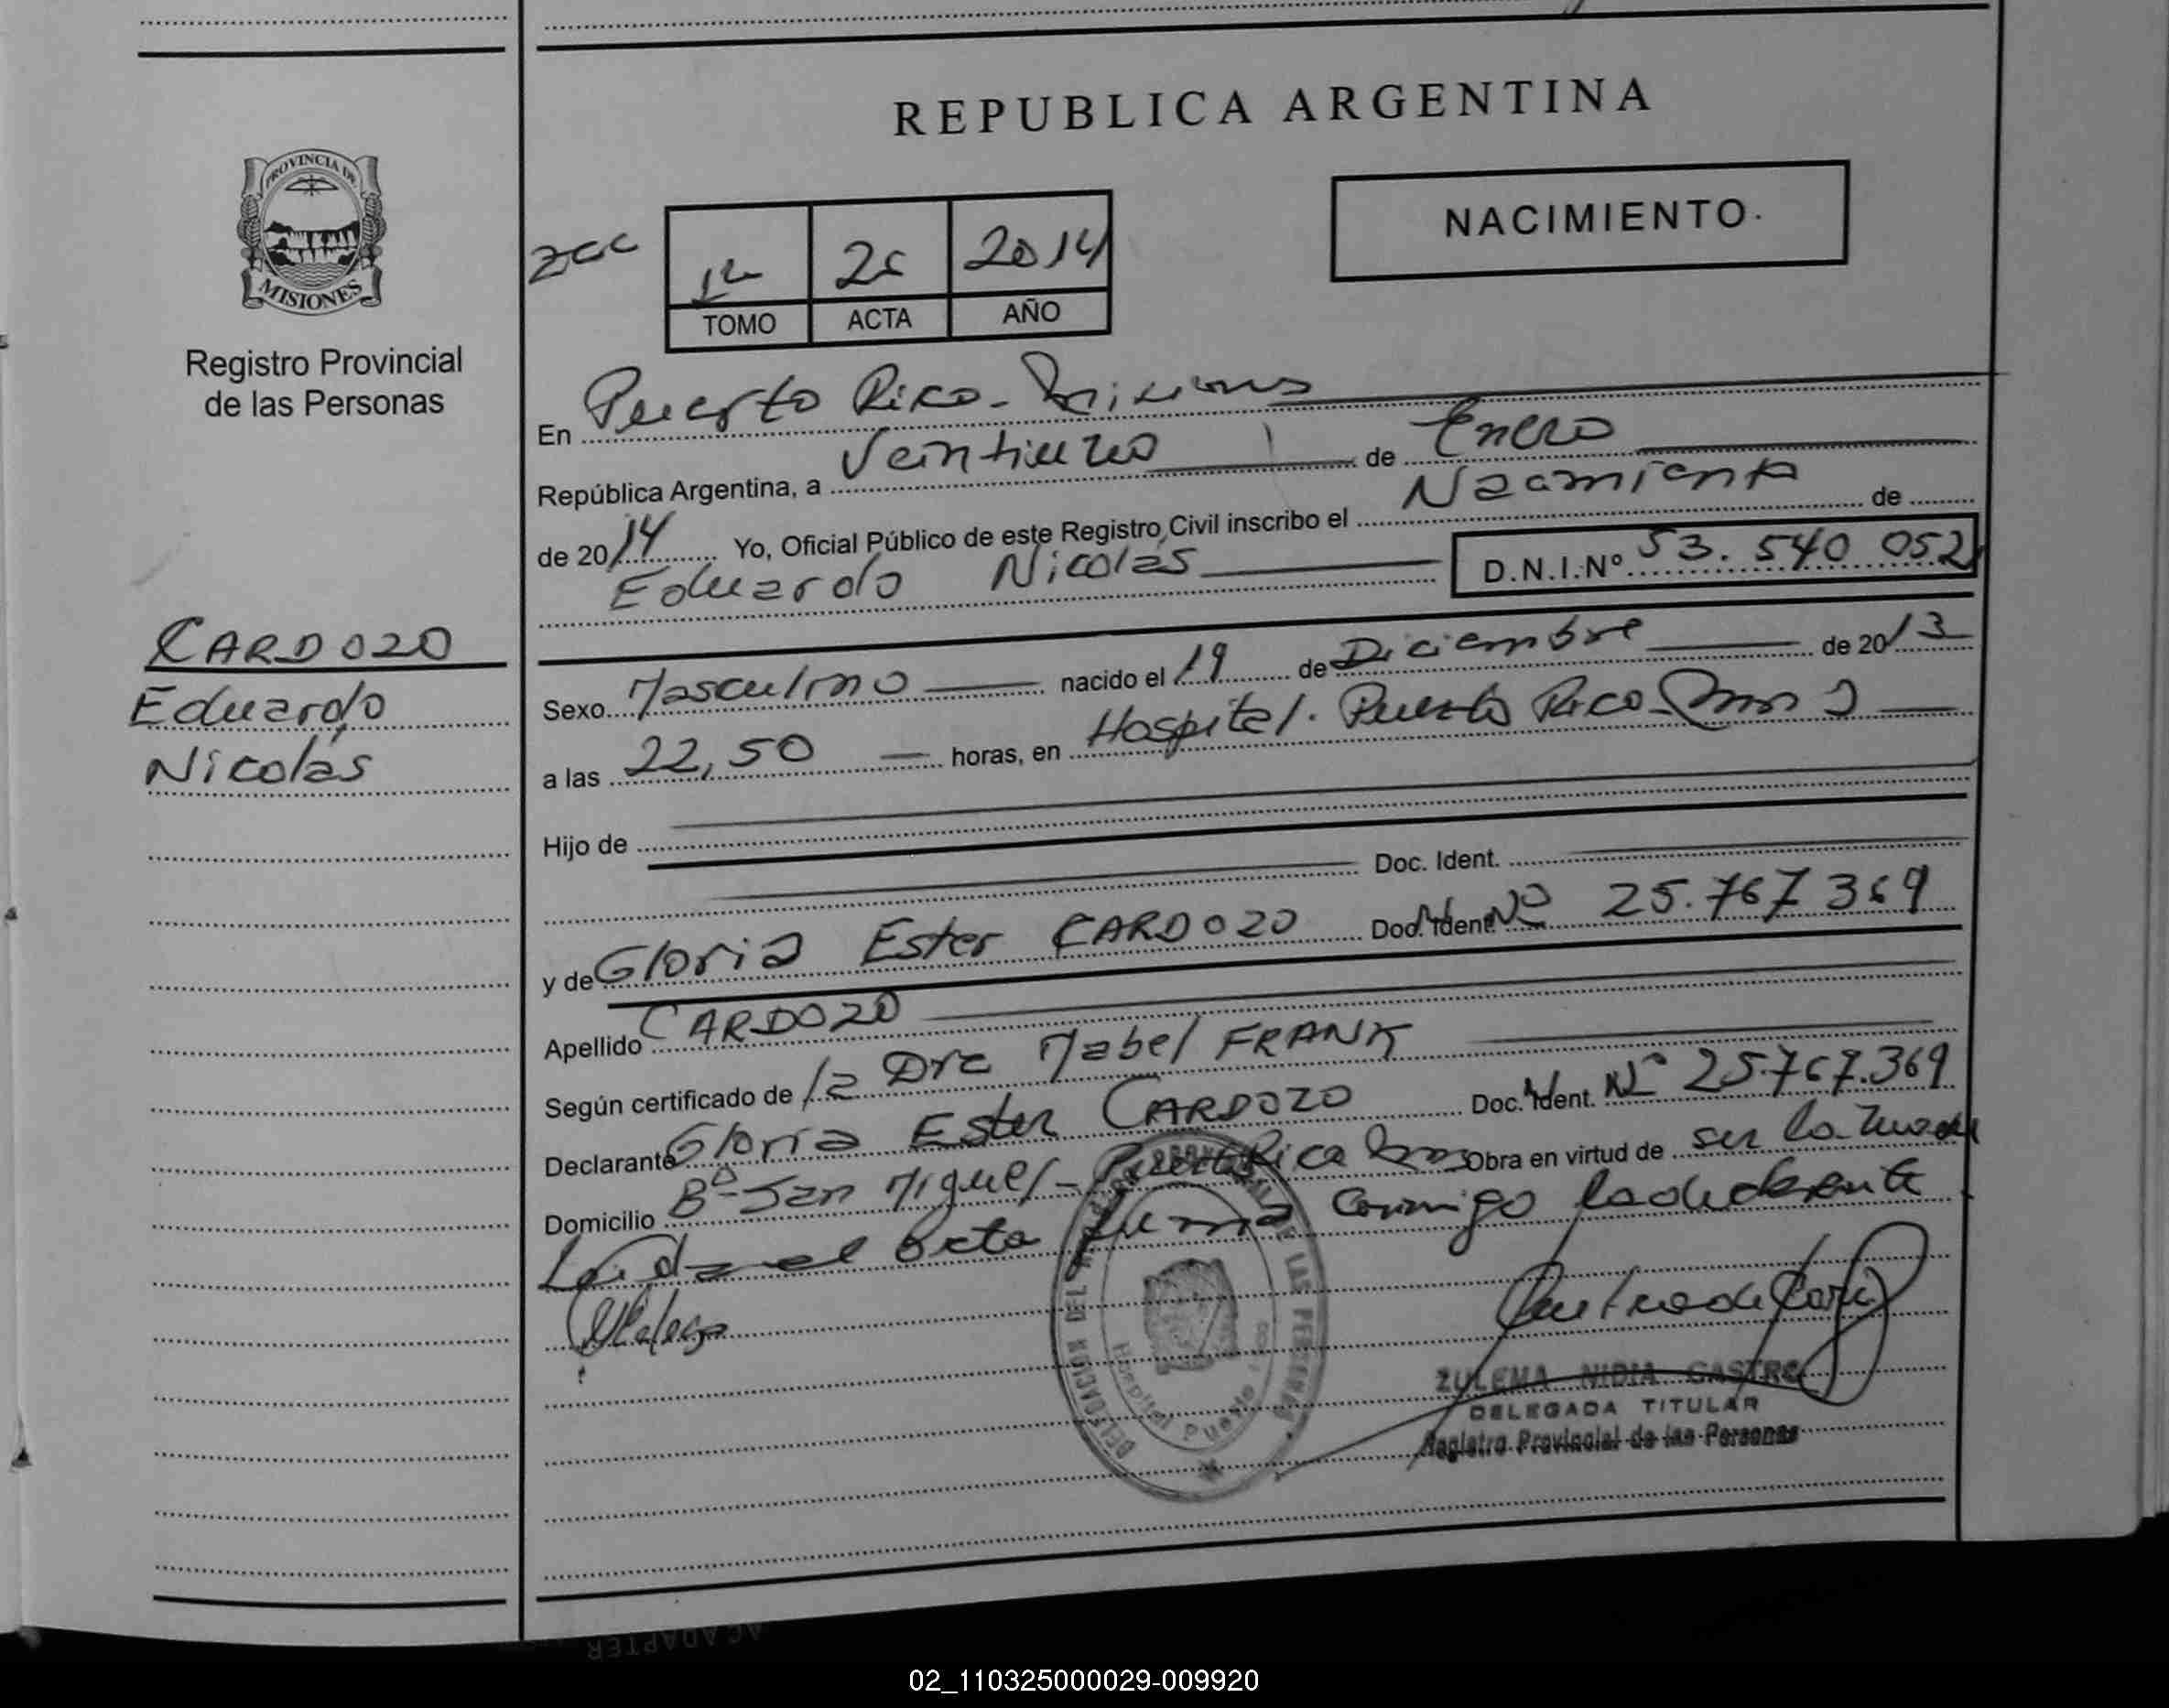 REPUBLICA ARGENTINA
PROVINCIA DE
MISIONES
Registro Provincial
de las Personas
NACIMIENTO
2014
TOMO ACTA AÑO
En Puerto Rico - Misiones
República Argentina, a Veintiuno de Enero
de 2014 Yo, Oficial Público de este Registro Civil inscribo el Nacimiento de
Eduardo Nicolás D.N.I.Nº 53.540 052
CARDOZO
Eduardo
Nicolás
Sexo Masculino nacido el 19 de Diciembre de 2013
a las 22,50 horas, en Hospital. Puerto Rico
Hijo de
Doc. Ident.
y de Gloria Ester CARDOZO Doc. Ident. Nº 25.767 369
Apellido CARDOZO
Según certificado de la Dra Mabel FRANK
Declarante Gloria Ester CARDOZO Doc. Ident. Nº 25.767.369
Domicilio Bº San Miguel - Puerto Rico Obra en virtud de ser la madre
Leida el Acta firma conmigo la declarante
DELEGACION DEL LAS PERSONAS
Hospital Puerto
ZULEMA NIDIA CASTRO
DELEGADA TITULAR
Registro Provincial de las Personas
AC ADAPTER
02_110325000029-009920